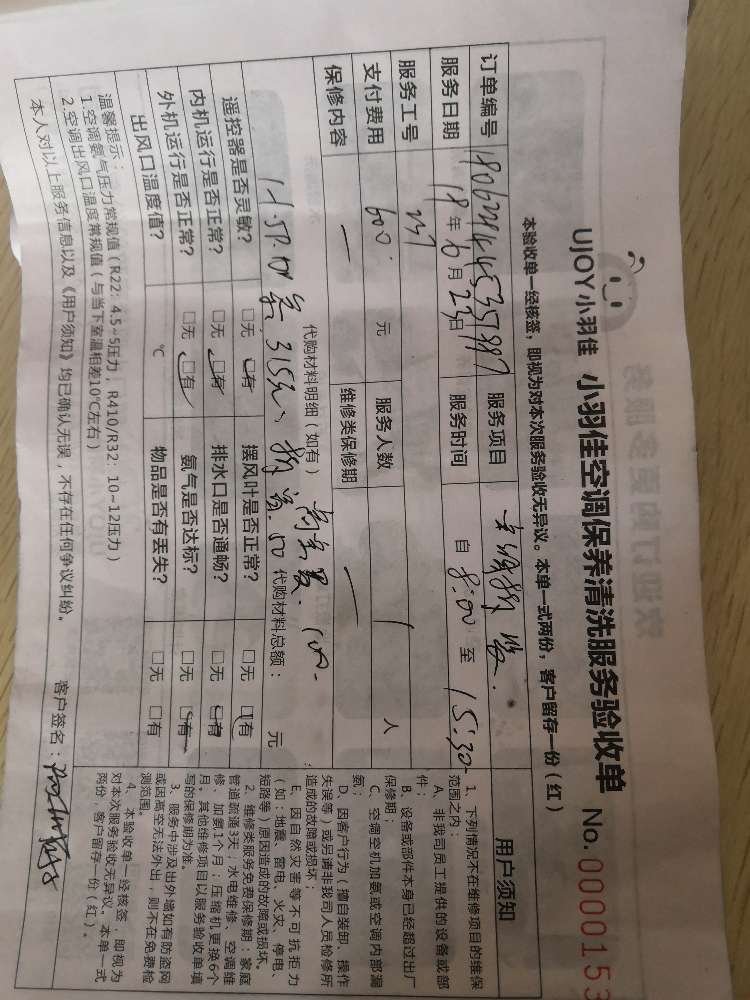 UJOY小羽佳 小羽佳空调保养清洗服务验收单 No. 0000153
本验收单一经核签，即视为对本次服务验收无异议。本单一式两份，客户留存一份（红）
订单编号 服务项目
服务日期 18年6月23日 服务时间 自 8:00 至 15:30
服务工号 237
支付费用 600 元 服务人数 1 人
保修内容 — 维修类保修期 —
代购材料明细（如有）
代购材料总额： 元
遥控器是否灵敏？ □无 □有 摆风叶是否正常？ □无 □有
内机运行是否正常？ □无 □有 排水口是否通畅？ □无 □有
外机运行是否正常？ □无 □有 氨气是否达标？ □无 □有
出风口温度值？ ℃ 物品是否有丢失？ □无 □有
温馨提示：
1.空调氨气压力常规值（R22：4.5~5压力，R410/R32：10~12压力）
2.空调出风口温度常规值（与当下室温相差10℃左右）
本人对以上服务信息以及《用户须知》均已确认无误，不存在任何争议纠纷。 客户签名：
用户须知
1、下列情况不在维修项目的维保
范围之内：
A、非我司员工提供的设备或部
件；
B、设备或部件本身已经超过出厂
保修期；
C、空调空机加氨或空调内部漏
氨；
D、因客户行为（擅自装卸、操作
失误等）或另请非我司人员检修所
造成的故障或损坏；
E、因自然灾害等不可抗拒力
（如：地震、雷电、火灾、停电、
短路等）原因造成的故障或损坏。
2、维修类服务免费保修期：家庭
管道疏通3天；水电维修、空调维
修、加氨1个月；压缩机更换6个
月。其他维修项目以服务验收单填
写的保修期为准。
3、服务中涉及出外墙如有防盗网
或因高空无法外出，则不在免费检
测范围。
4、本验收单一经核签，即视为
对本次服务验收无异议。本单一式
两份，客户留存一份（红）。